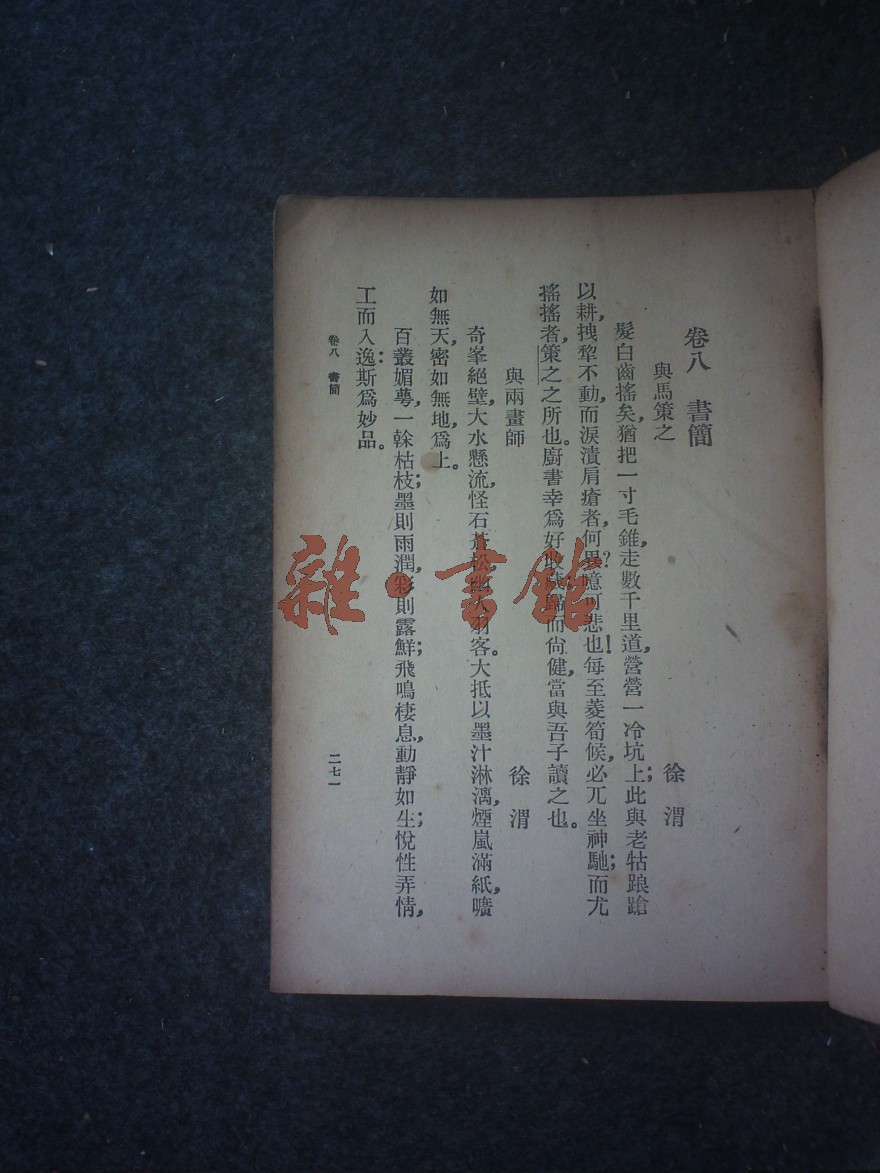 卷八　書簡
與馬策之　徐　渭
髮白齒搖矣，猶把一寸毛錐，走數千里道，營營一冷坑上；此與老牯踉蹌
以耕，拽犂不動，而淚漬肩瘡者，何異？噫可悲也！每至菱筍候，必兀坐神馳；而尤
搖搖者，策之之所也。廚書幸爲好收藏，歸而尙健，當與吾子讀之也。
與兩畫師　徐　渭
奇峯絕壁，大水懸流，怪石蒼松，幽人羽客。大抵以墨汁淋漓，煙嵐滿紙，曠
如無天，密如無地，爲上。
百叢媚萼，一榦枯枝；墨則雨潤，彩則露鮮；飛鳴棲息，動靜如生；悅性弄情，
工而入逸：斯爲妙品。
卷八　書簡　二七一
雜·書館